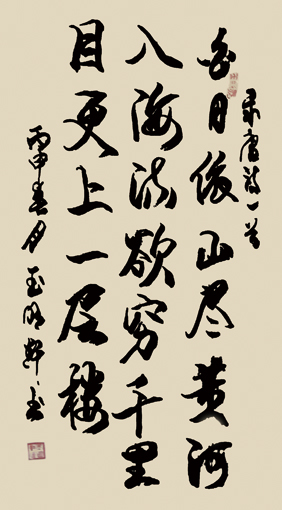 录唐诗一首
白日依山尽黄河
入海流欲穷千里
目更上一层楼
丙申春月